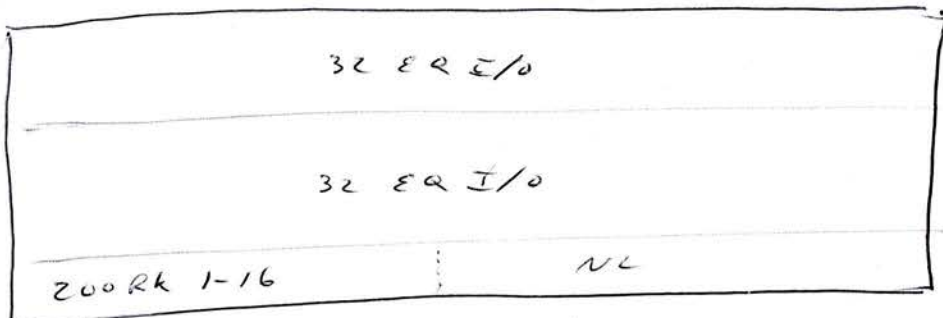 32 EQ I/O
32 EQ I/O
200RK 1-16 NL